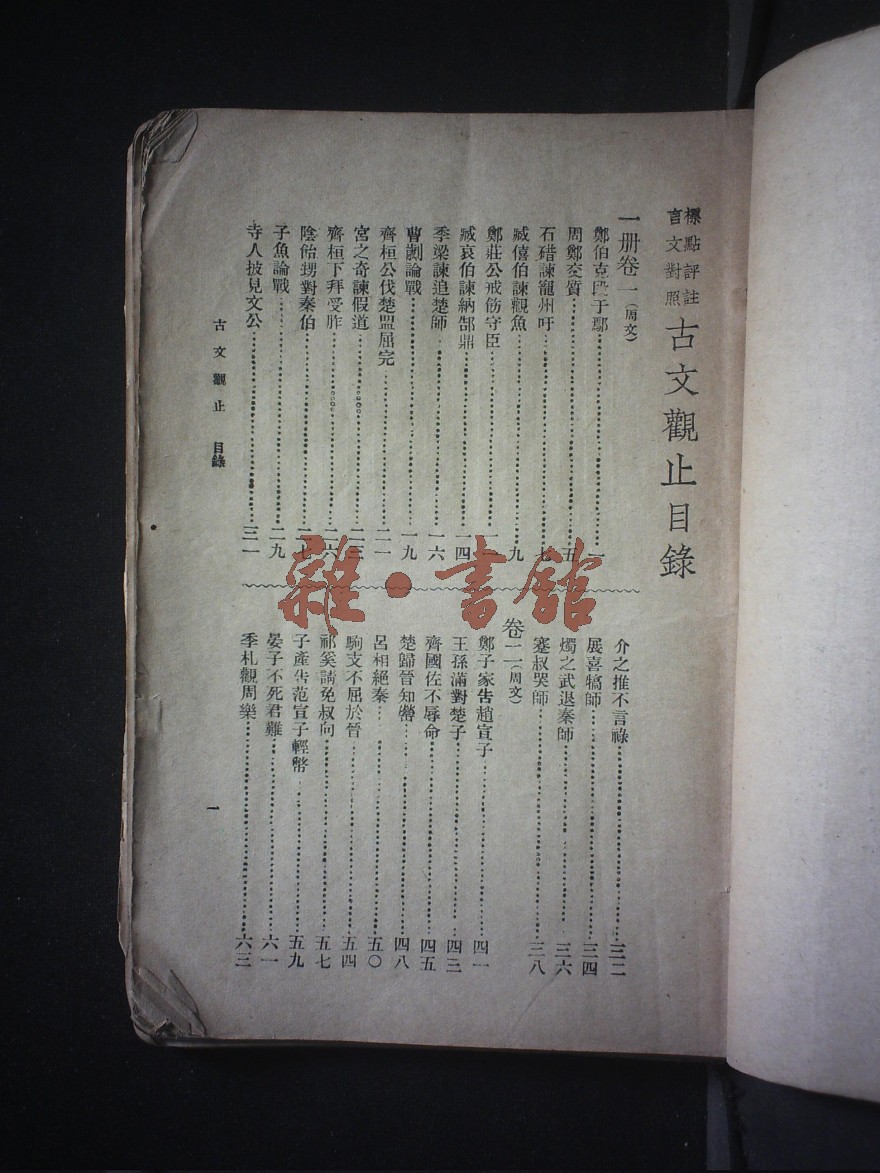 標點評註
言文對照
古文觀止目錄
一册卷一(周文)
鄭伯克段于鄢……一
周鄭交質……五
石碏諫寵州吁……七
臧僖伯諫觀魚……九
鄭莊公戒飭守臣……
臧哀伯諫納郜鼎……一四
季梁諫追楚師……一六
曹劌論戰……一九
齊桓公伐楚盟屈完……二一
宮之奇諫假道……二三
齊桓下拜受胙……二六
陰飴甥對秦伯……二七
子魚論戰……二九
寺人披見文公……三一
介之推不言祿……三二
展喜犒師……三四
燭之武退秦師……三六
蹇叔哭師……三八
卷二(周文)
鄭子家告趙宣子……四一
王孫滿對楚子……四三
齊國佐不辱命……四五
楚歸晉知罃……四八
呂相絕秦……五〇
駒支不屈於晉……五四
祁奚請免叔向……五七
子產告范宣子輕幣……五九
晏子不死君難……六一
季札觀周樂……六三
古文觀止 目錄
一
雜·書館